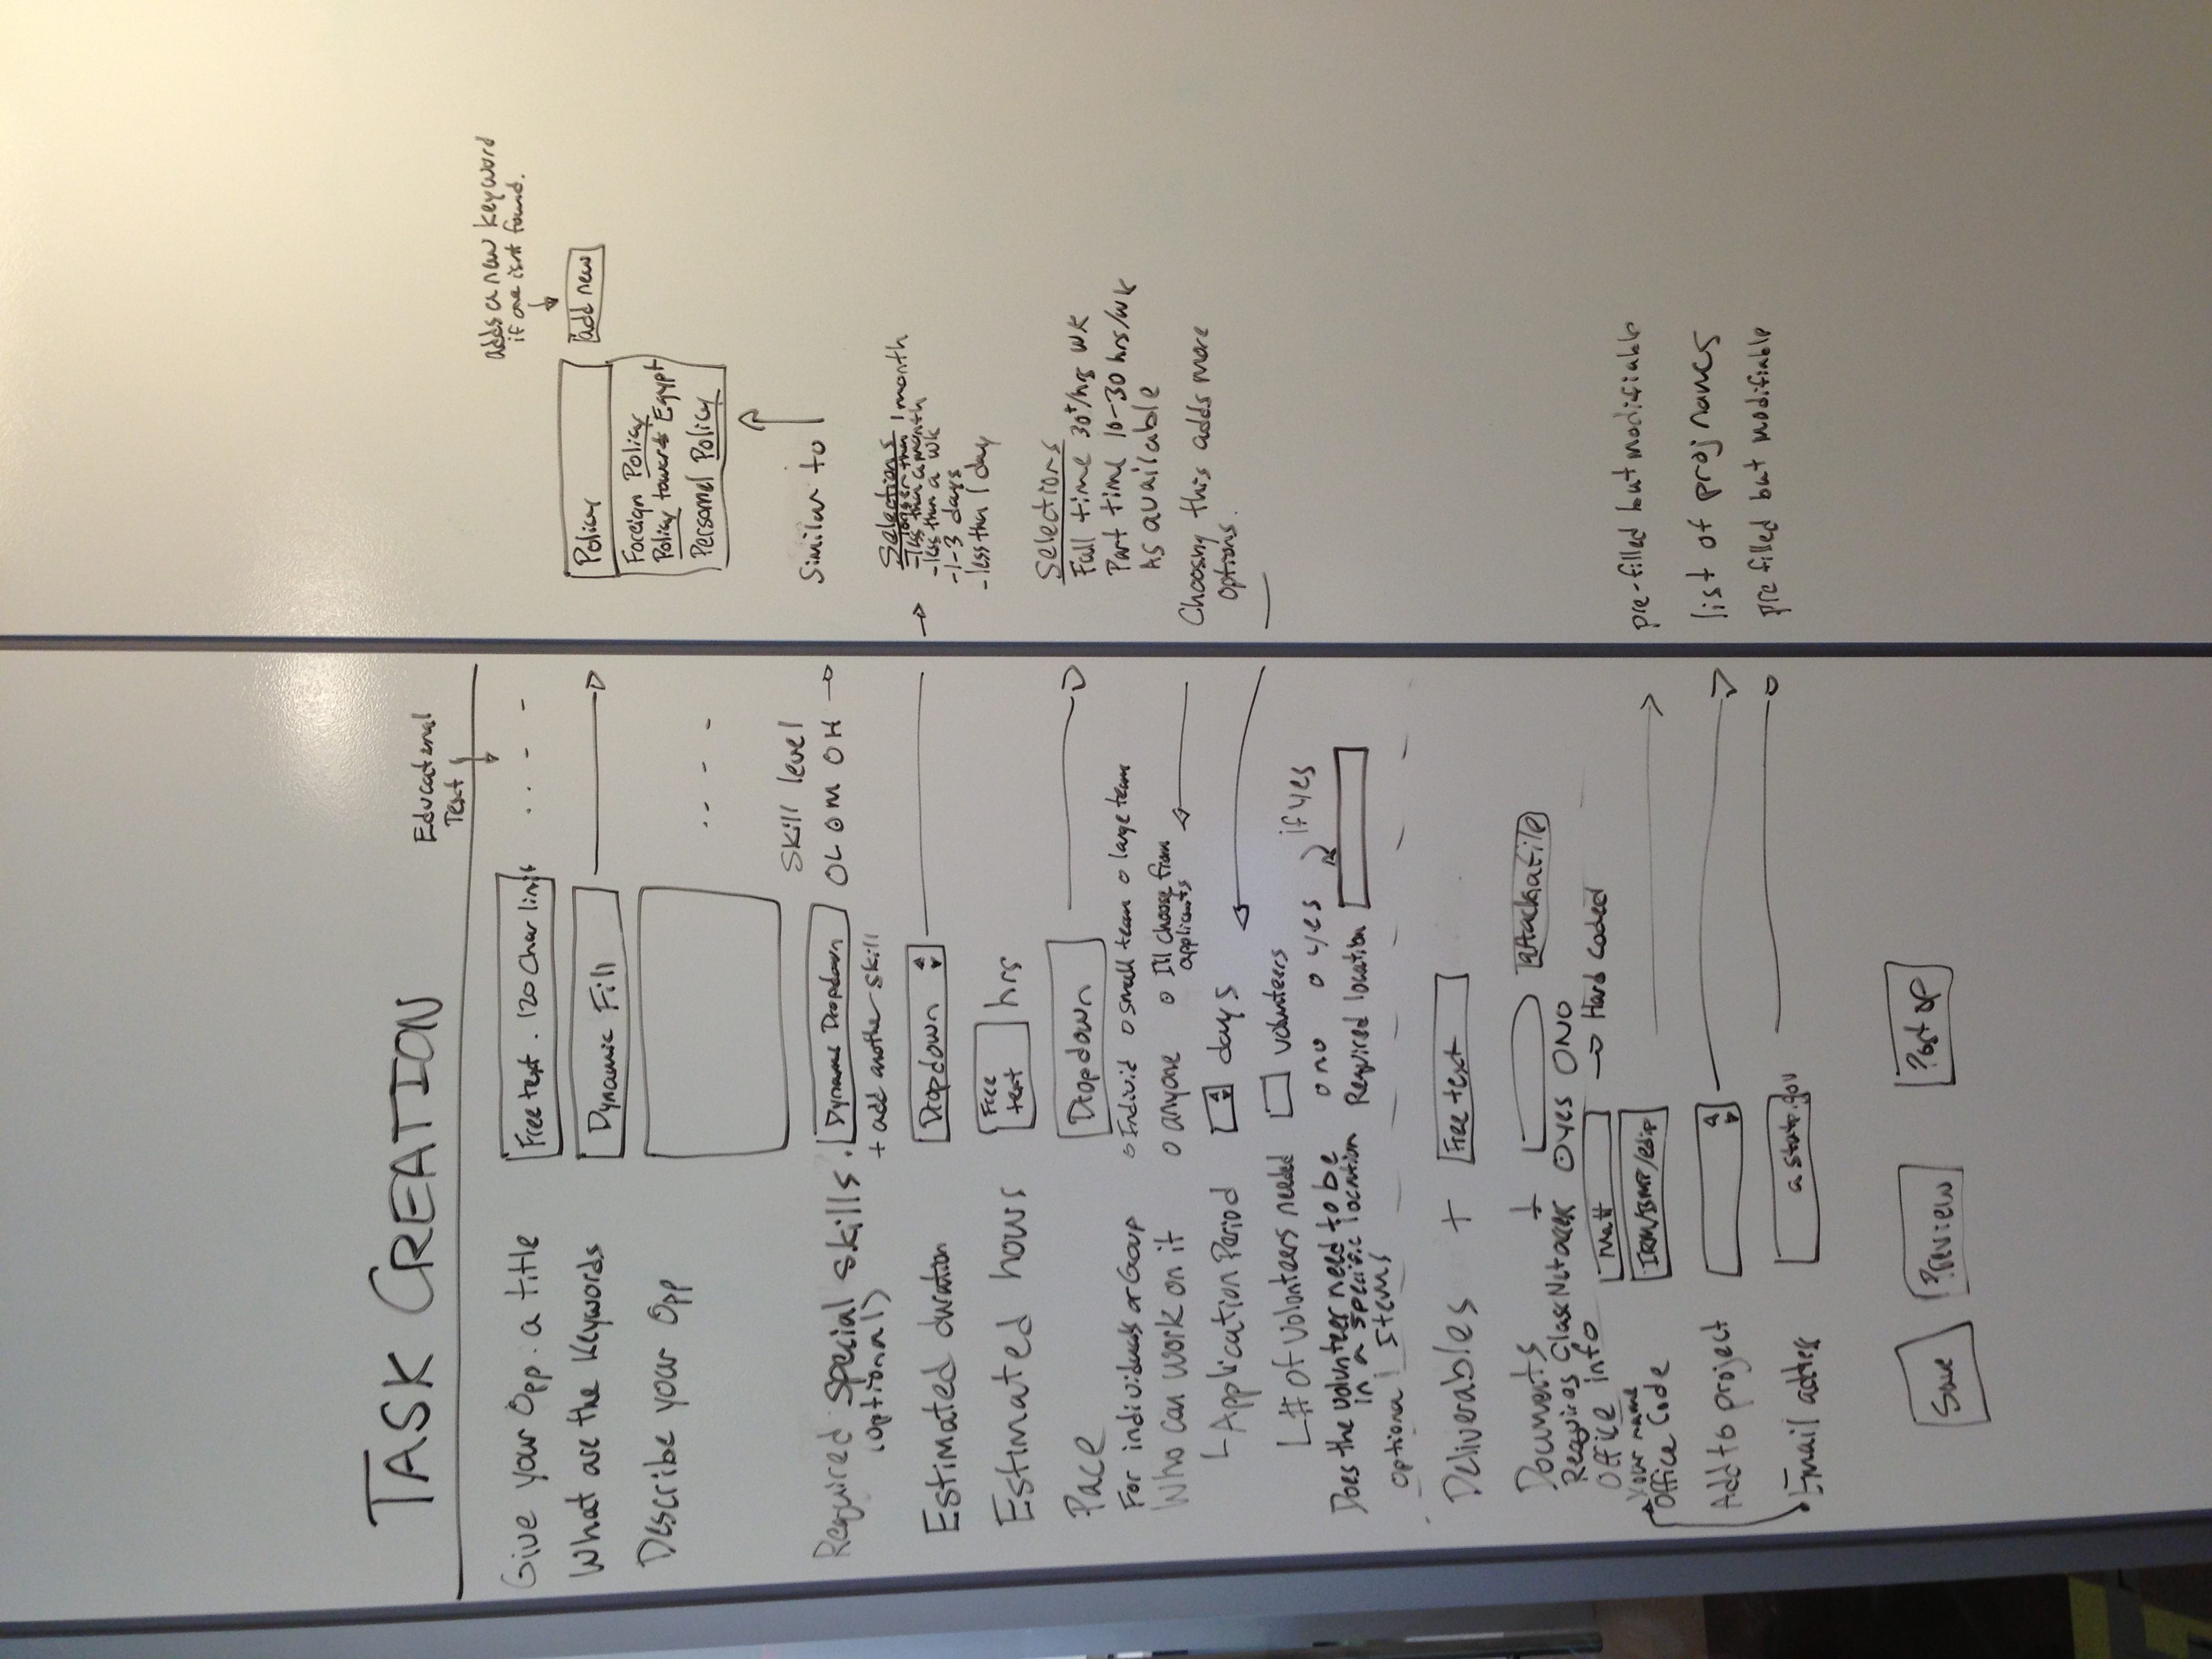 TASK CREATION
Educational
Text
Give your Opp. a title
Free text . 120 Char limit
adds a new keyword
if one isnt found.
What are the Keywords
Dynamic Fill
Policy
add new
Foreign Policy
Policy towards Egypt
Personnel Policy
Describe your Opp
Similar to
Skill level
Required special skills.
(optional)
Dynamic Dropdown
O L O M O H
+ add another skill
Estimated duration
Dropdown
Selections
- longer than 1 month
- less than a month
- less than a wk
- 1-3 days
- less than 1 day
Estimated hours
Free
text
hrs
Pace
Dropdown
Selections
Full time 30+/hrs WK
Part time 10-30 hrs/wk
As available
For individuals or Goup
o Individ o small team o large team
Who can work on it
o anyone
o I'll choose from
applicants
Choosing this adds more
options.
Application Period
days
# of volunteers needed
volunteers
Does the volunteer need to be
in a specific location
o no o yes
if yes
Required location
Optional Items
Deliverables + Free text
Documents +
attach a file
Requires ClassNet access O yes O NO
Office info
Your name
Matt
Hard Coded
Office Code
IRM/BMP/edip
pre-filled but modifiable
Add to project
list of proj names
Email address
a state.gov
pre filled but modifiable
Save
Preview
Post op